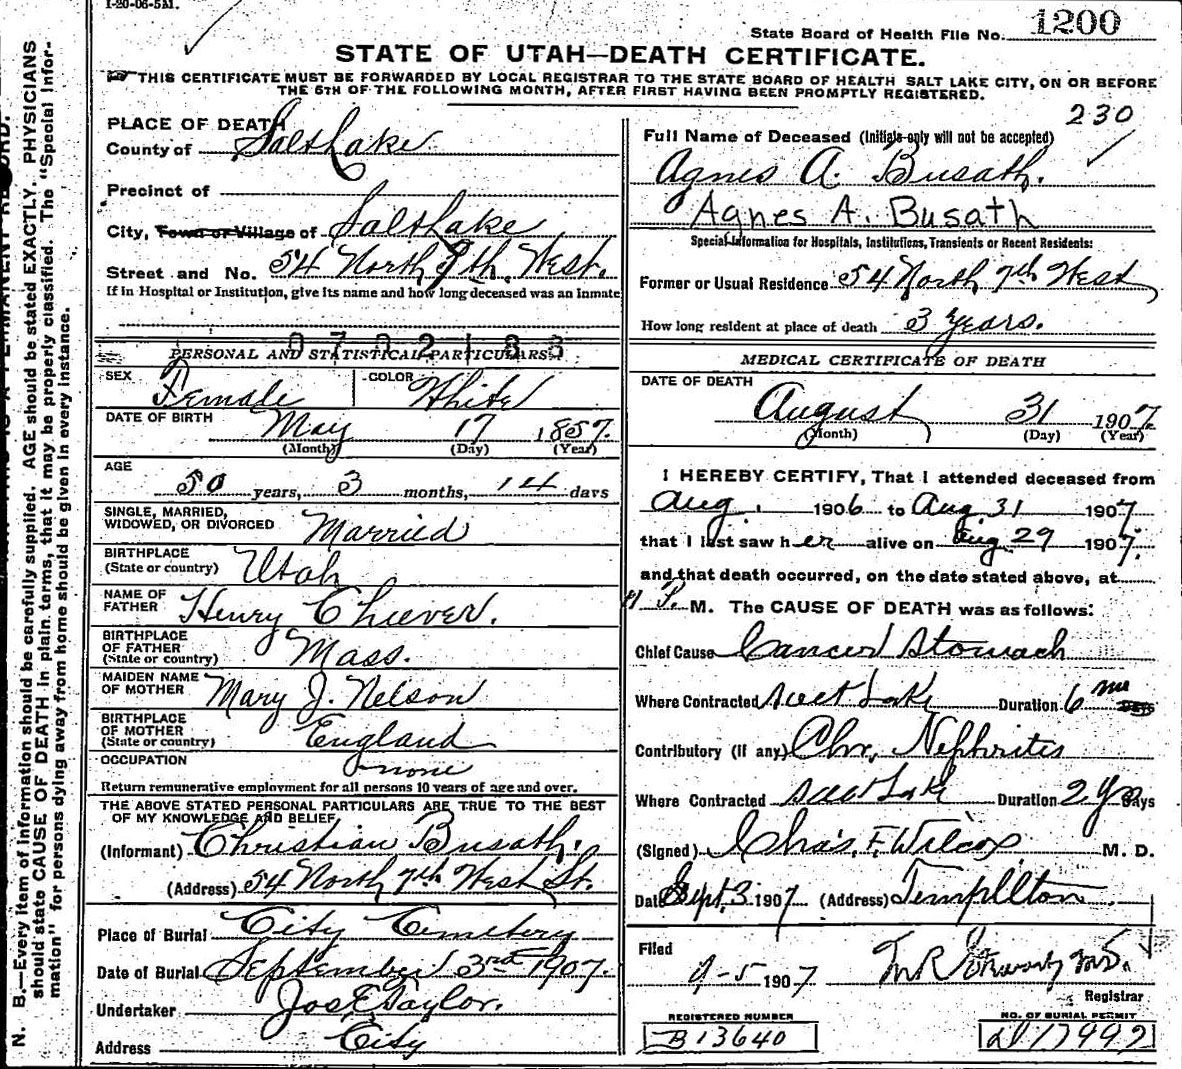 1-20-06-5M.
State Board of Health File No. 1200
STATE OF UTAH—DEATH CERTIFICATE.
THIS CERTIFICATE MUST BE FORWARDED BY LOCAL REGISTRAR TO THE STATE BOARD OF HEALTH SALT LAKE CITY, ON OR BEFORE
THE 5TH OF THE FOLLOWING MONTH, AFTER FIRST HAVING BEEN PROMPTLY REGISTERED.
N. B.—Every item of information should be carefully supplied. AGE should be stated EXACTLY. PHYSICIANS
should state CAUSE OF DEATH in plain terms, that it may be properly classified. The "Special Infor-
mation" for persons dying away from home should be given in every instance.
PLACE OF DEATH
County of Salt Lake
Precinct of
City, Town or Village of Salt Lake
Street and No. 54 North 7th West.
If in Hospital or Institution, give its name and how long deceased was an inmate
0702188
PERSONAL AND STATISTICAL PARTICULARS
SEX Female COLOR White
DATE OF BIRTH May 17 1857.
(Month) (Day) (Year)
AGE
50 years, 3 months, 14 days
SINGLE, MARRIED,
WIDOWED, OR DIVORCED Married
BIRTHPLACE
(State or country) Utah
NAME OF
FATHER Henry Cheever.
BIRTHPLACE
OF FATHER
(State or country) Mass.
MAIDEN NAME
OF MOTHER Mary J. Nelson
BIRTHPLACE
OF MOTHER
(State or country) England
OCCUPATION none
Return remunerative employment for all persons 10 years of age and over.
THE ABOVE STATED PERSONAL PARTICULARS ARE TRUE TO THE BEST
OF MY KNOWLEDGE AND BELIEF
(Informant) Christian Busath.
(Address) 54 North 7th West St.
Place of Burial City Cemetery
Date of Burial September 3rd 1907.
Undertaker Jos E Taylor.
Address City
230
Full Name of Deceased (Initials only will not be accepted)
Agnes A. Busath.
Agnes A. Busath
Special Information for Hospitals, Institutions, Transients or Recent Residents:
Former or Usual Residence 54 North 7th West
How long resident at place of death 3 Years.
MEDICAL CERTIFICATE OF DEATH
DATE OF DEATH
August 31 1907.
(Month) (Day) (Year)
I HEREBY CERTIFY, That I attended deceased from
Aug. 1906 to Aug. 31 1907
that I last saw her alive on Aug 29 1907.
and that death occurred, on the date stated above, at
P. M. The CAUSE OF DEATH was as follows:
Chief Cause Cancer Stomach
Where Contracted Salt Lake Duration 6 mo
Contributory (if any) Chr. Nephrites
Where Contracted Salt Lake Duration 2 yrs Days
(Signed) Chas. F. Wilcox M. D.
Date Sept. 3 1907 (Address) Templeton
Filed
9-5 1907
Registrar
REGISTERED NUMBER
B 13640
NO. OF BURIAL PERMIT
17992